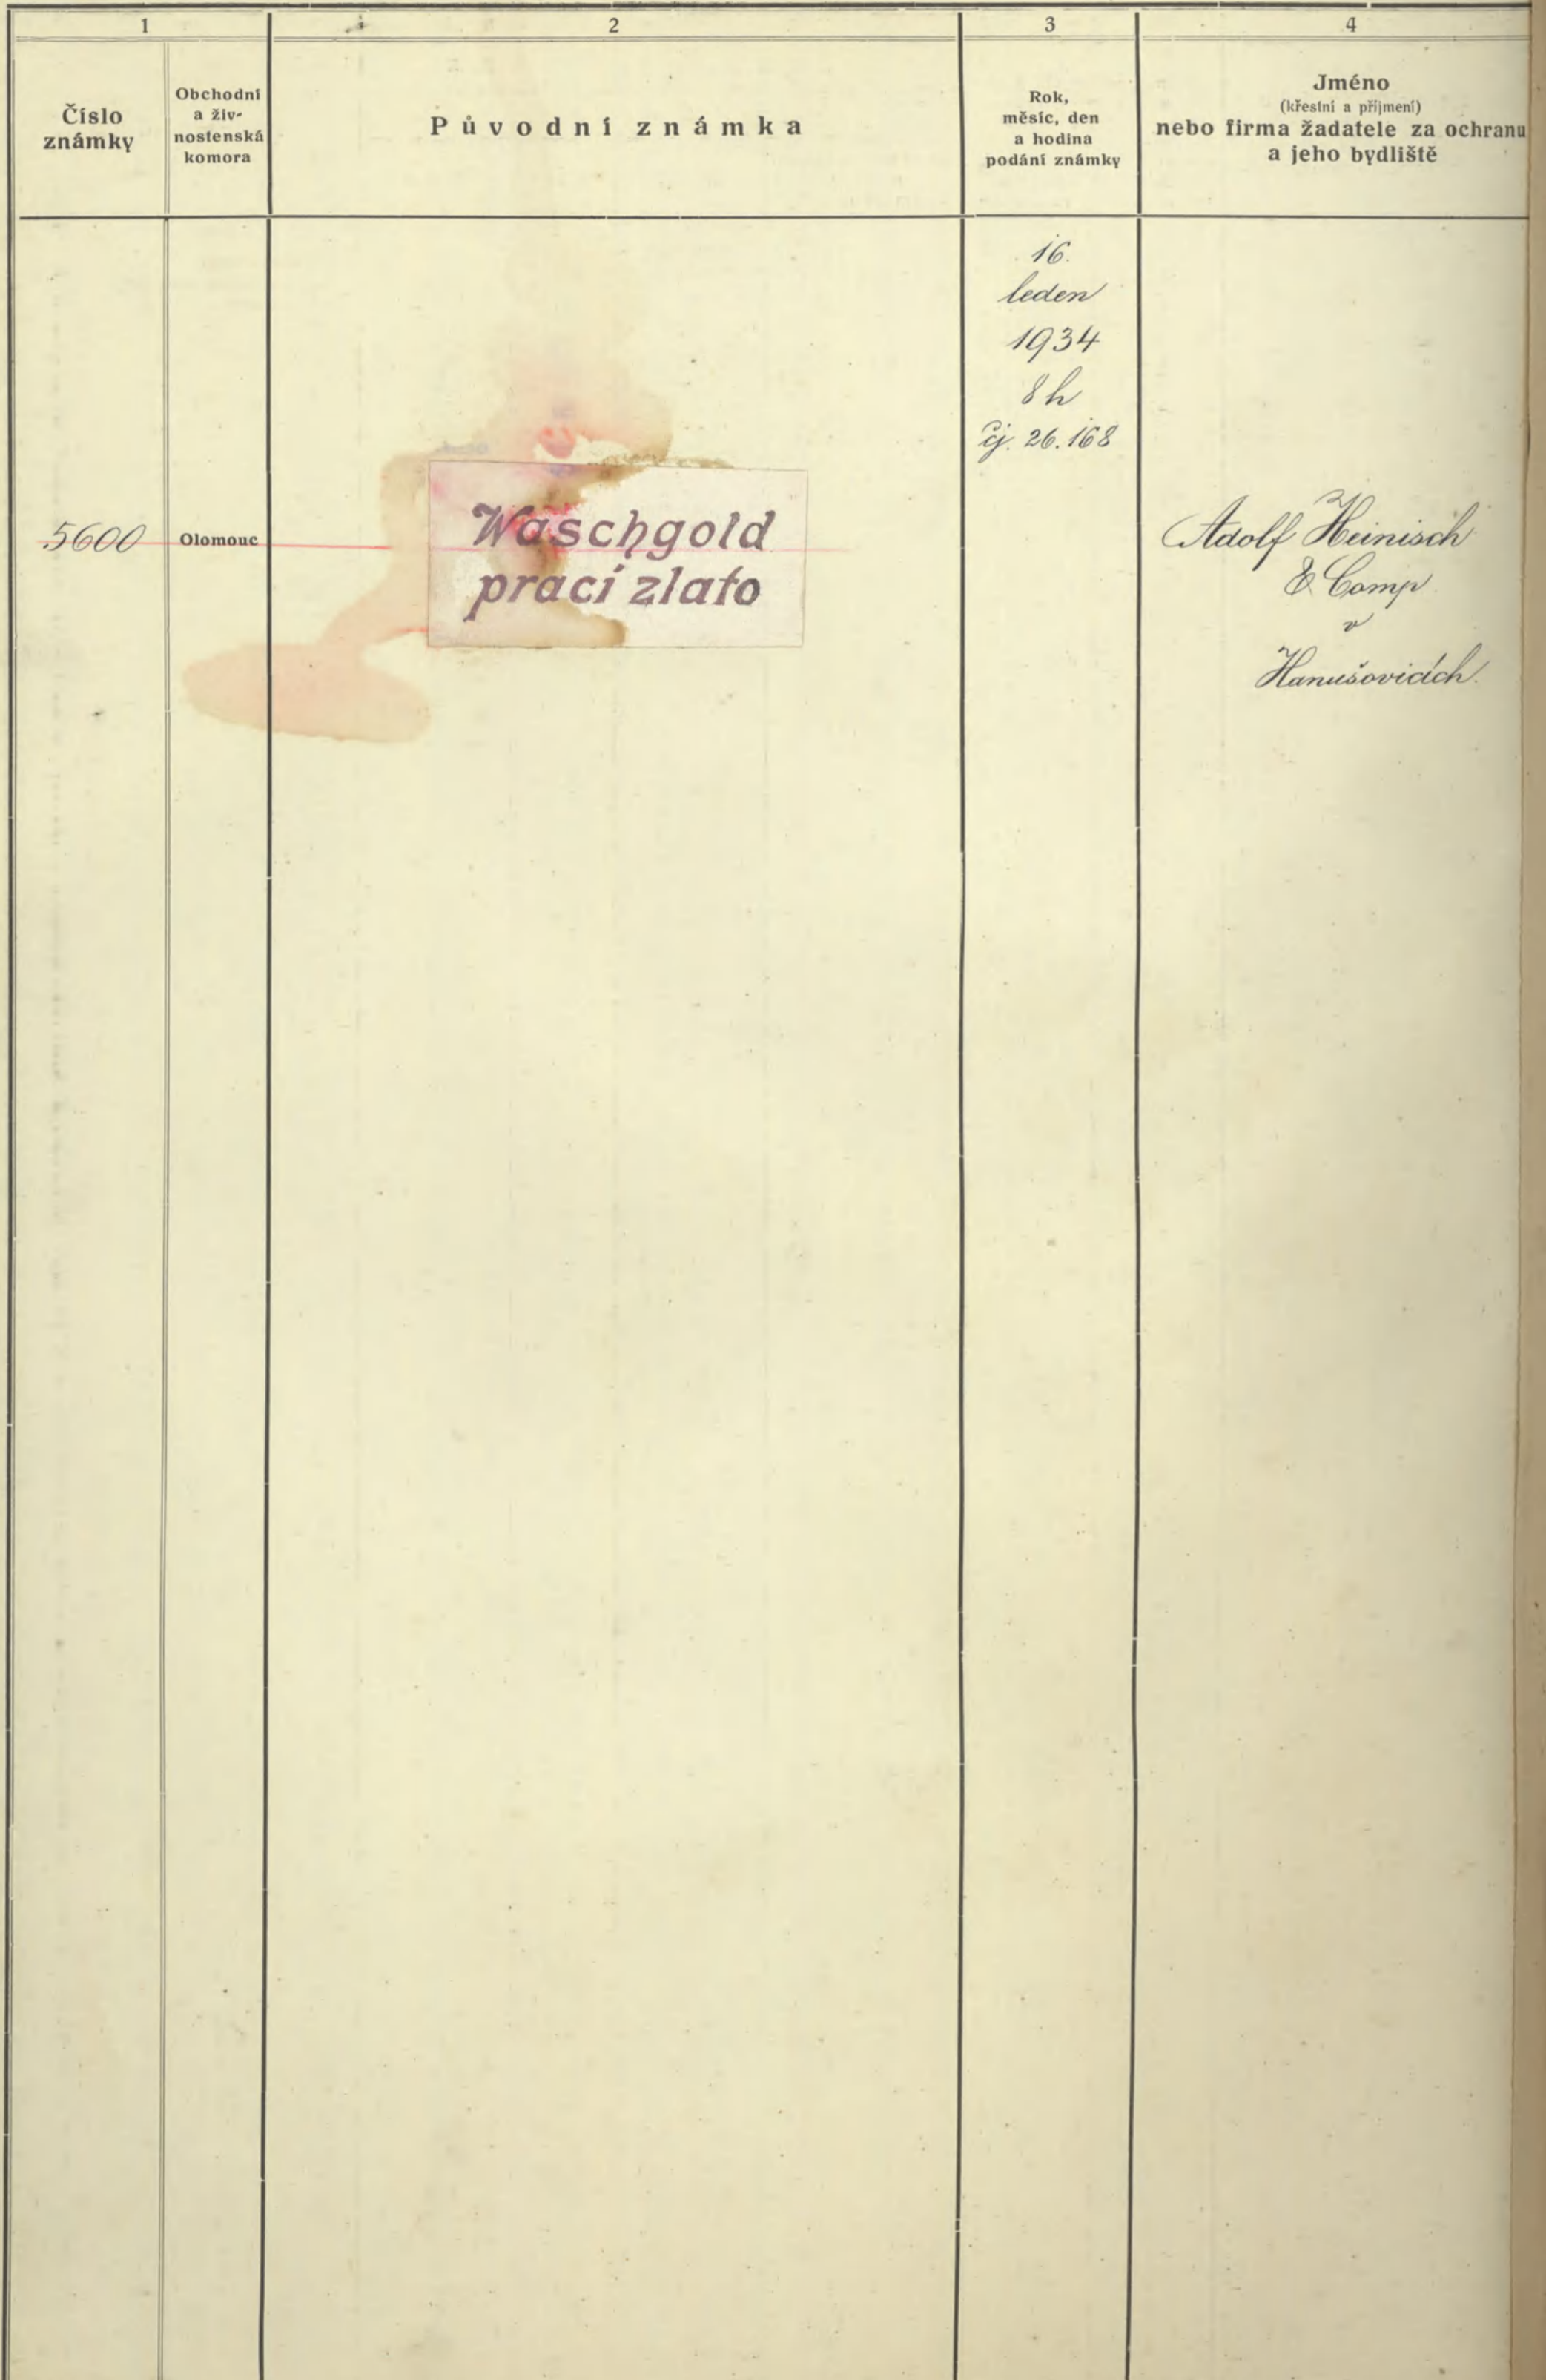 1
2
3
4
Číslo
známky
Obchodní
a živ-
nostenská
komora
Původní známka
Rok,
měsíc, den
a hodina
podání známky
Jméno
(křestní a příjmení)
nebo firma žadatele za ochranu
a jeho bydliště
16.
leden
1934
8 h
čj. 26.168
5600
Olomouc
Waschgold
prací zlato
Adolf Heinisch
& Comp.
v
Hanušovicích.